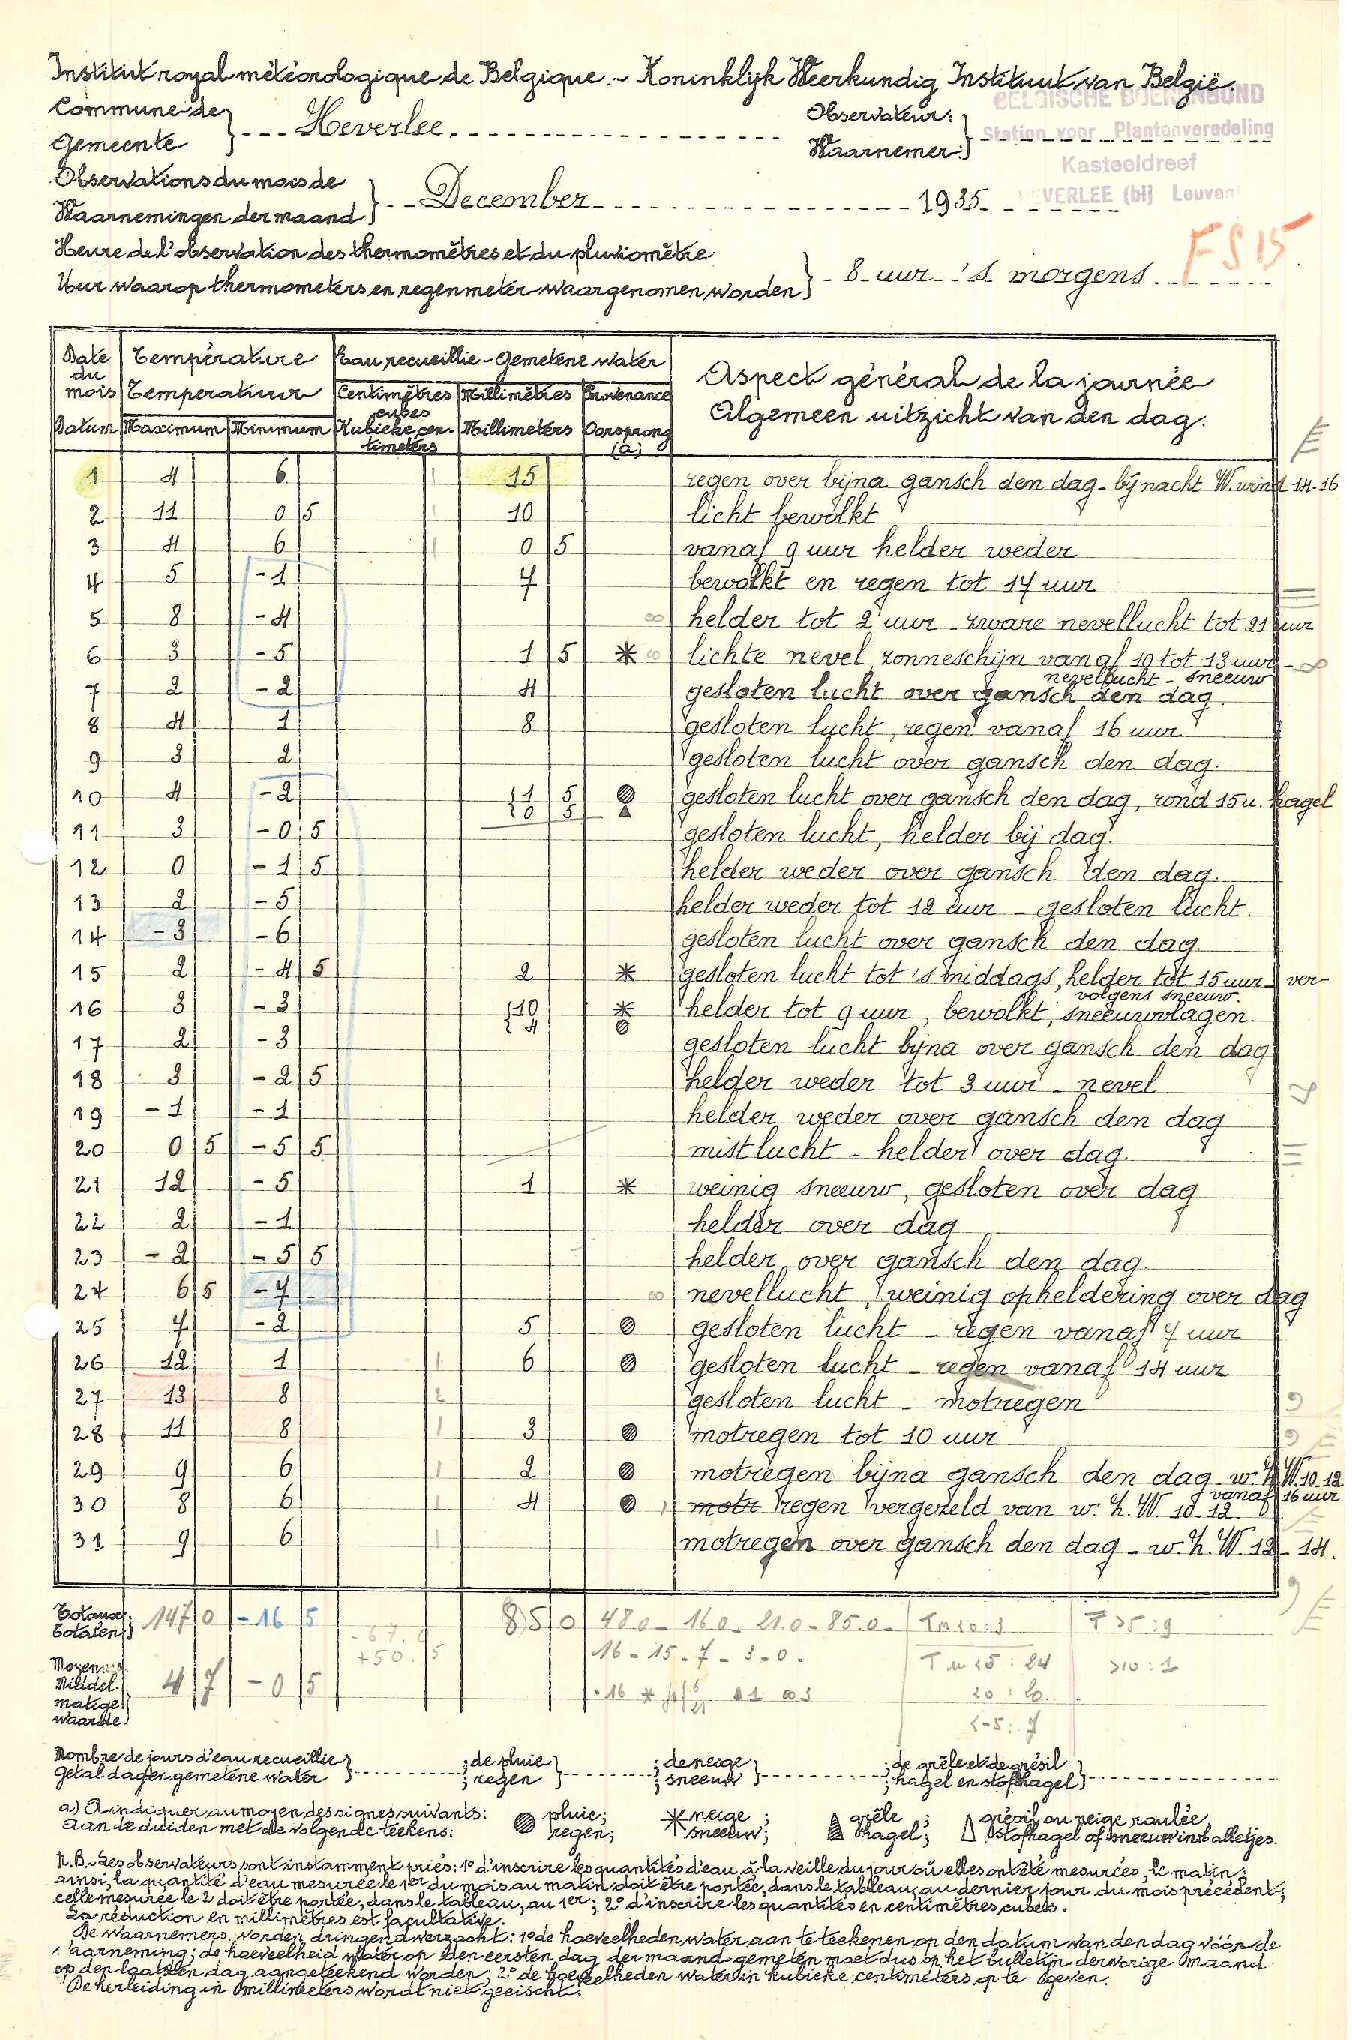 Institut royal météorologique de Belgique. - Koninklijk Weerkundig Instituut van België.
Commune de
Gemeente
Heverlee
Observateur:
Waarnemer:
BELGISCHE BOERENBOND
Station voor Plantenveredeling
Kasteeldreef
HEVERLEE (bij Leuven
Observations du mois de
Waarnemingen der maand
December 1935
Heure de l'observation des thermomètres et du pluviomètre
Uur waarop thermometers en regenmeter waargenomen worden
8 uur 's morgens
FS15
Date du mois Température Eau recueillie - Gemetene water Aspect général de la journée
Datum Temperatuur Algemeen uitzicht van den dag.
Maximum Minimum Centimètres cubes Kubieke centimeters Millimètres Millimeters Provenance Oorsprong (a)
1 4 6 15 regen over bijna gansch den dag - bij nacht W. wind 14-16
2 11 0 5 10 licht bewolkt
3 4 6 0 5 vanaf 9 uur helder weder
4 5 -1 7 bewolkt en regen tot 17 uur
5 8 -4 helder tot 2 uur - zware nevellucht tot 21 uur
6 3 -5 1 5 * lichte nevel, zonneschijn vanaf 10 tot 13 uur - ∞
nevellucht - sneeuw
7 2 -2 4 gesloten lucht over gansch den dag.
8 4 1 8 gesloten lucht, regen vanaf 16 uur
9 3 2 gesloten lucht over gansch den dag.
10 4 -2 {1 5 {0 5 gesloten lucht over gansch den dag, rond 15 u. hagel
11 3 -0 5 gesloten lucht, helder bij dag.
12 0 -1 5 helder weder over gansch den dag.
13 2 -5 helder weder tot 12 uur - gesloten lucht.
14 -3 -6 gesloten lucht over gansch den dag
15 2 -4 5 2 * gesloten lucht tot 's middags, helder tot 15 uur - ver-
volgens sneeuw.
16 3 -3 {10 * {4 helder tot 9 uur, bewolkt, sneeuwvlagen
17 2 -3 gesloten lucht bijna over gansch den dag
18 3 -2 5 helder weder tot 3 uur - nevel
19 -1 -1 helder weder over gansch den dag
20 0 5 -5 5 mistlucht - helder over dag
21 12 -5 1 * weinig sneeuw, gesloten over dag
22 2 -1 helder over dag
23 -2 -5 5 helder over gansch den dag
24 6 5 -7 nevellucht, weinig opheldering over dag
25 7 -2 5 gesloten lucht - regen vanaf 7 uur
26 12 1 6 gesloten lucht - regen vanaf 14 uur
27 13 8 gesloten lucht - motregen
28 11 8 3 motregen tot 10 uur
29 9 6 2 motregen bijna gansch den dag - w. Z. W. 10-12
vanaf 16 uur
30 8 6 4 motr regen vergezeld van w. Z. W. 10-12.
31 9 6 motregen over gansch den dag - w. Z. W. 12-14.
Totaux:
Totalen:
147 0 -16 5 85 0 48.0 - 16.0 - 21.0 - 85.0
+50. 5 16 - 15 - 7 - 3 - 0.
Moyennes
Middelmatige
waarde
4 7 -0 5
Nombre de jours d'eau recueillie ; de pluie ; de neige ; de grêle et de grésil
Getal dagen gemetene water ; regen ; sneeuw ; hagel en stofhagel
a) A indiquer au moyen des signes suivants: pluie; neige; grêle; grésil ou neige roulée
Aan te duiden met de volgende teekens: regen; sneeuw; hagel; stofhagel of sneeuwindballetjes.
N.B. Les observateurs sont instamment priés: 1° d'inscrire les quantités d'eau, à la veille du jour où elles ont été mesurées, le matin;
ainsi, la quantité d'eau mesurée le 1er du mois au matin doit être portée, dans le tableau, au dernier jour du mois précédent;
celle mesurée le 2 doit être portée, dans le tableau, au 1er; 2° d'inscrire les quantités en centimètres cubes.
La réduction en millimètres est facultative.
De waarnemers worden dringend verzocht: 1° de hoeveelheden water aan te teekenen op den datum van den dag vóór de
waarneming; de hoeveelheid water op den eersten dag der maand gemeten moet dus op het bulletin der vorige maand
op den laatsten dag aangeteekend worden; 2° de hoeveelheden water in kubieke centimeters op te geven.
De herleiding in millimeters wordt niet geëischt.